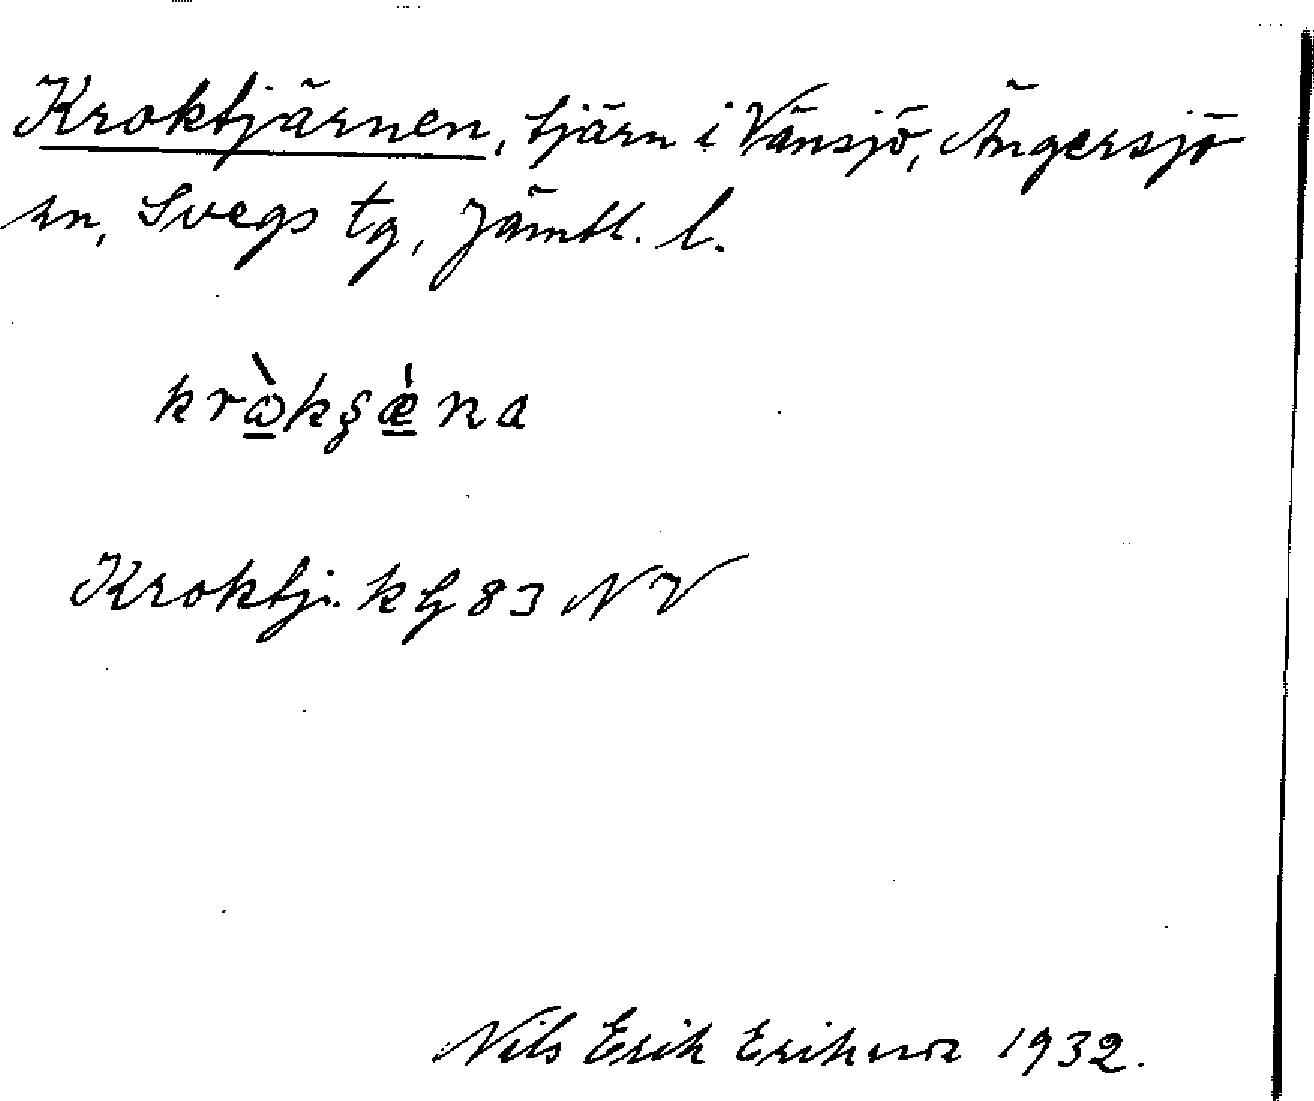 Kroktjärnen, tjärn i Vänsjö, Ängersjö
sn, Svegs tg, Jämtl. l.
krὼ̲kʂæ̲̀na
Kroktj. kg 83 NV
Nils Erik Eriksson 1932.